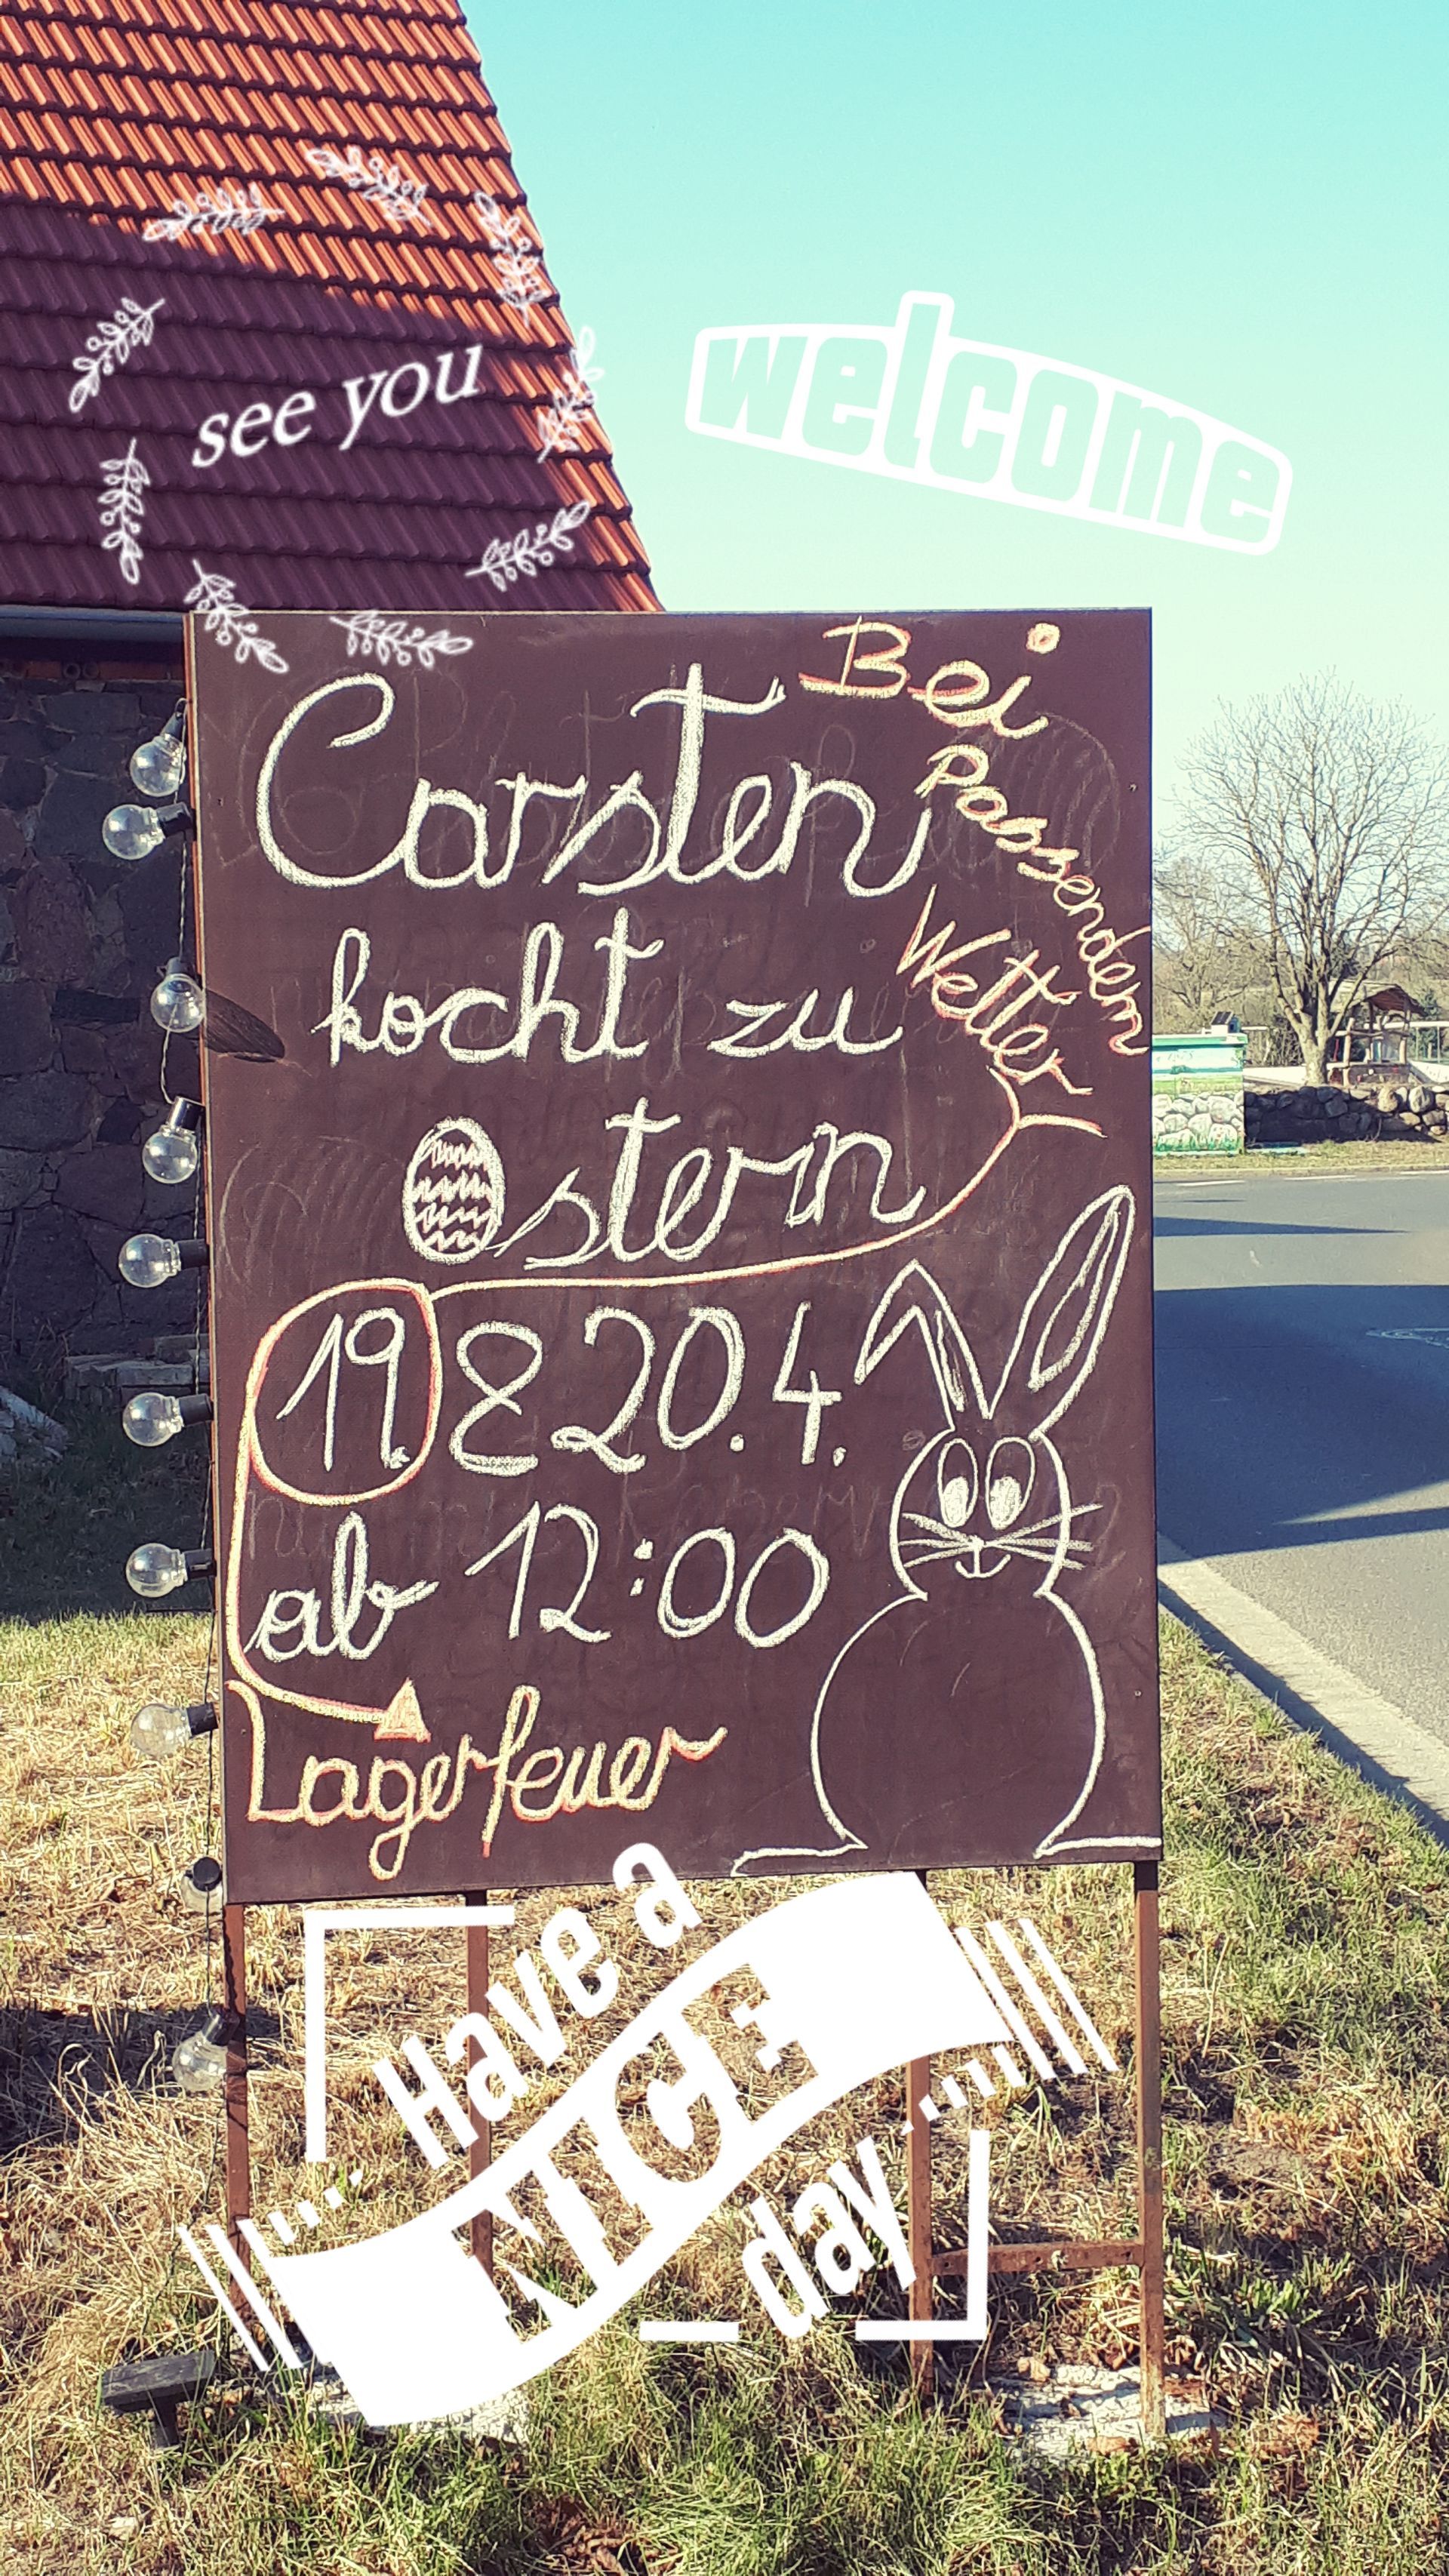 see you
welcome
Bei
passendem
Wetter
Carsten
kocht zu
Ostern
19. & 20. 4.
ab 12:00
Lagerfeuer
Have a
NICE
day